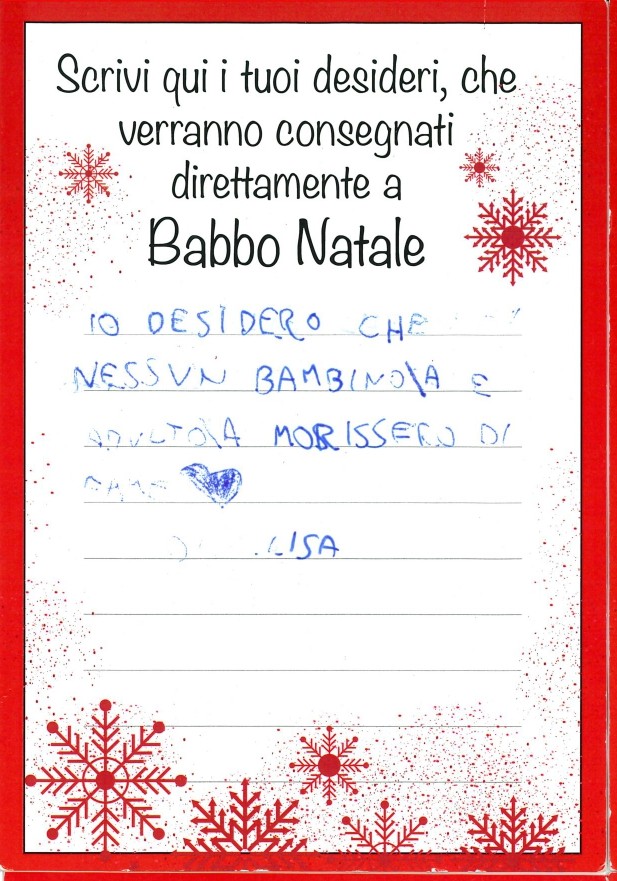 Scrivi qui i tuoi desideri, che
verranno consegnati
direttamente a
Babbo Natale
IO DESIDERO CHE
NESSUN BAMBINO\A E
ADULTO\A MORISSERO DI
FAME
LISA